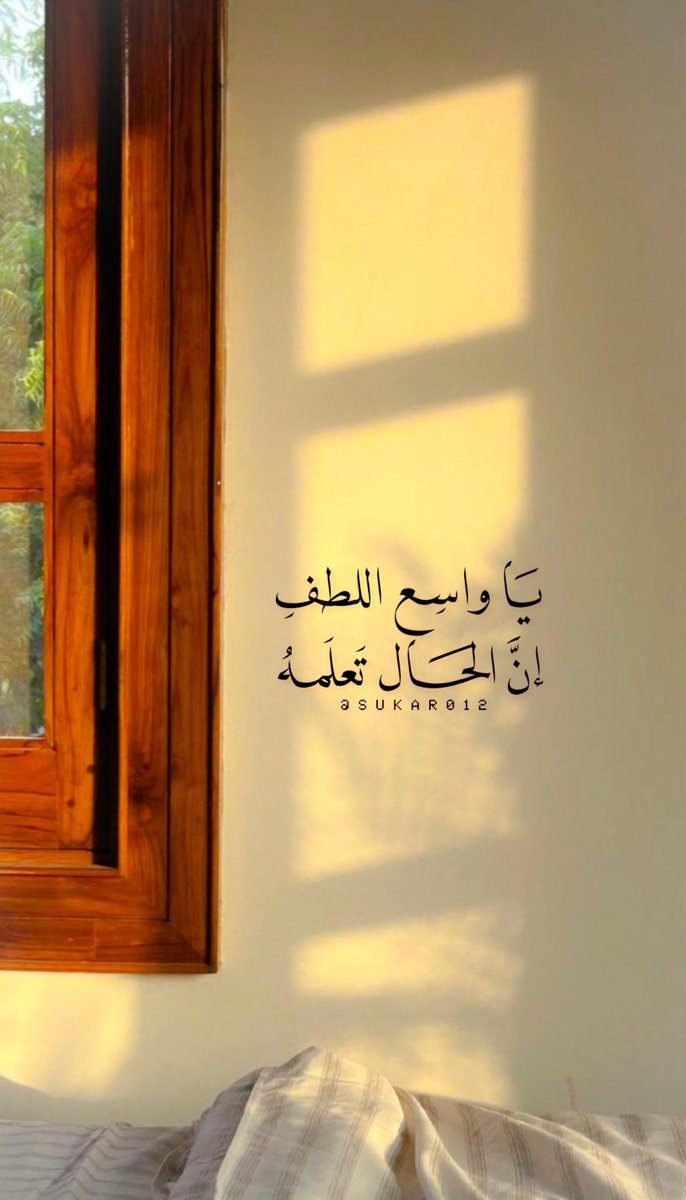 يَا واسِع اللطفِ
إنَّ الحَال تَعلَمهُ
@SUKAR012